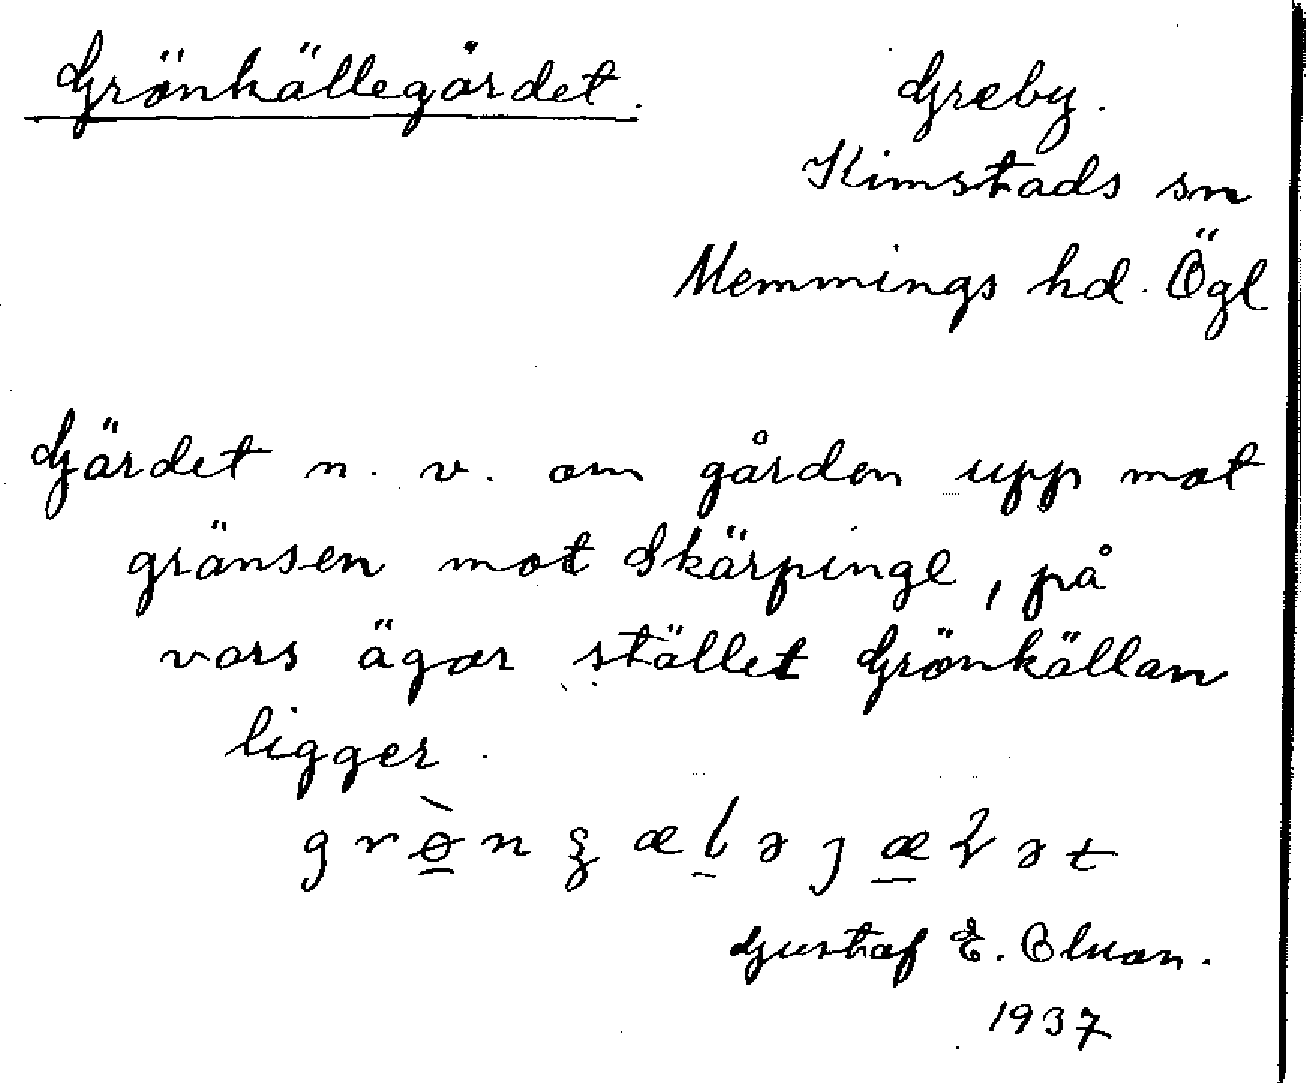 Grönkällegärdet.
Greby.
Kimstads sn
Memmings hd. Ögl
Gärdet n. v. om gården upp mot
gränsen mot Skärpinge, på
vars ägor stället Grönkällan
ligger.
Gustaf E.
1937